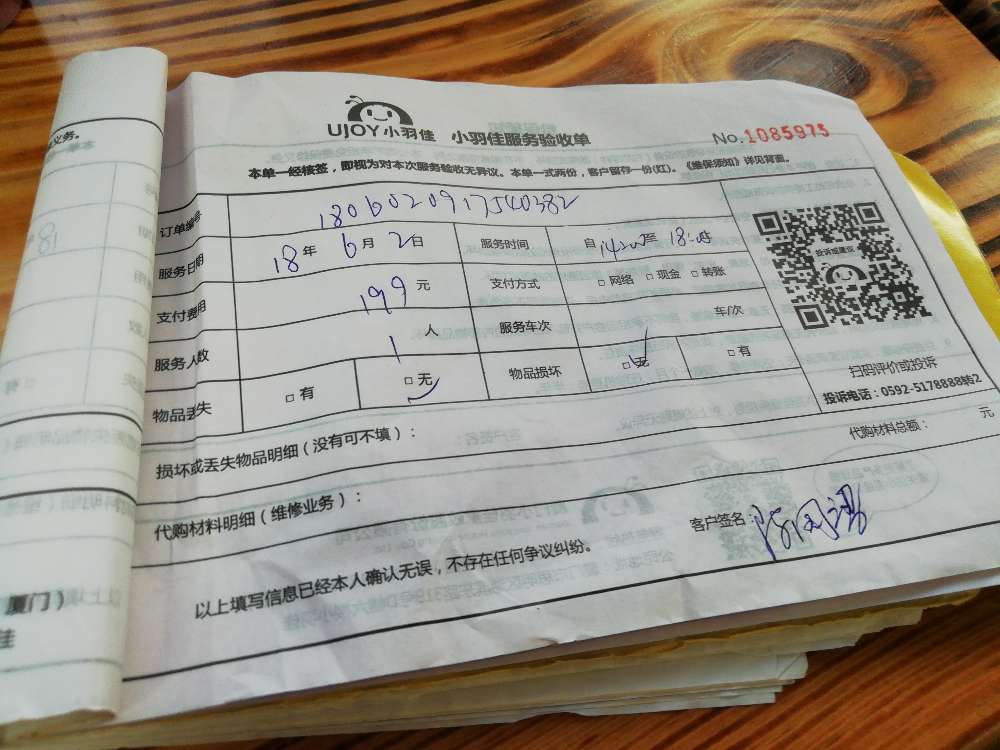 UJOY小羽佳 小羽佳服务验收单 No.1085975
本单一经核签，即视为对本次服务验收无异议。本单一式两份，客户留存一份(红)。《维保须知》详见背面。
订单编号 1806020917540382
服务日期 18年 6月 2日 服务时间 自14:00至 18:00时
支付费用 199元 支付方式 □网络 □现金 □转账
服务人数 1人 服务车次 车/次
物品丢失 □有 □无 物品损坏 □无 □有
投诉或建议
扫码评价或投诉
投诉电话：0592-5178888转2
损坏或丢失物品明细（没有可不填）：
代购材料明细（维修业务）： 代购材料总额： 元
以上填写信息已经本人确认无误，不存在任何争议纠纷。 客户签名
厦门）
佳